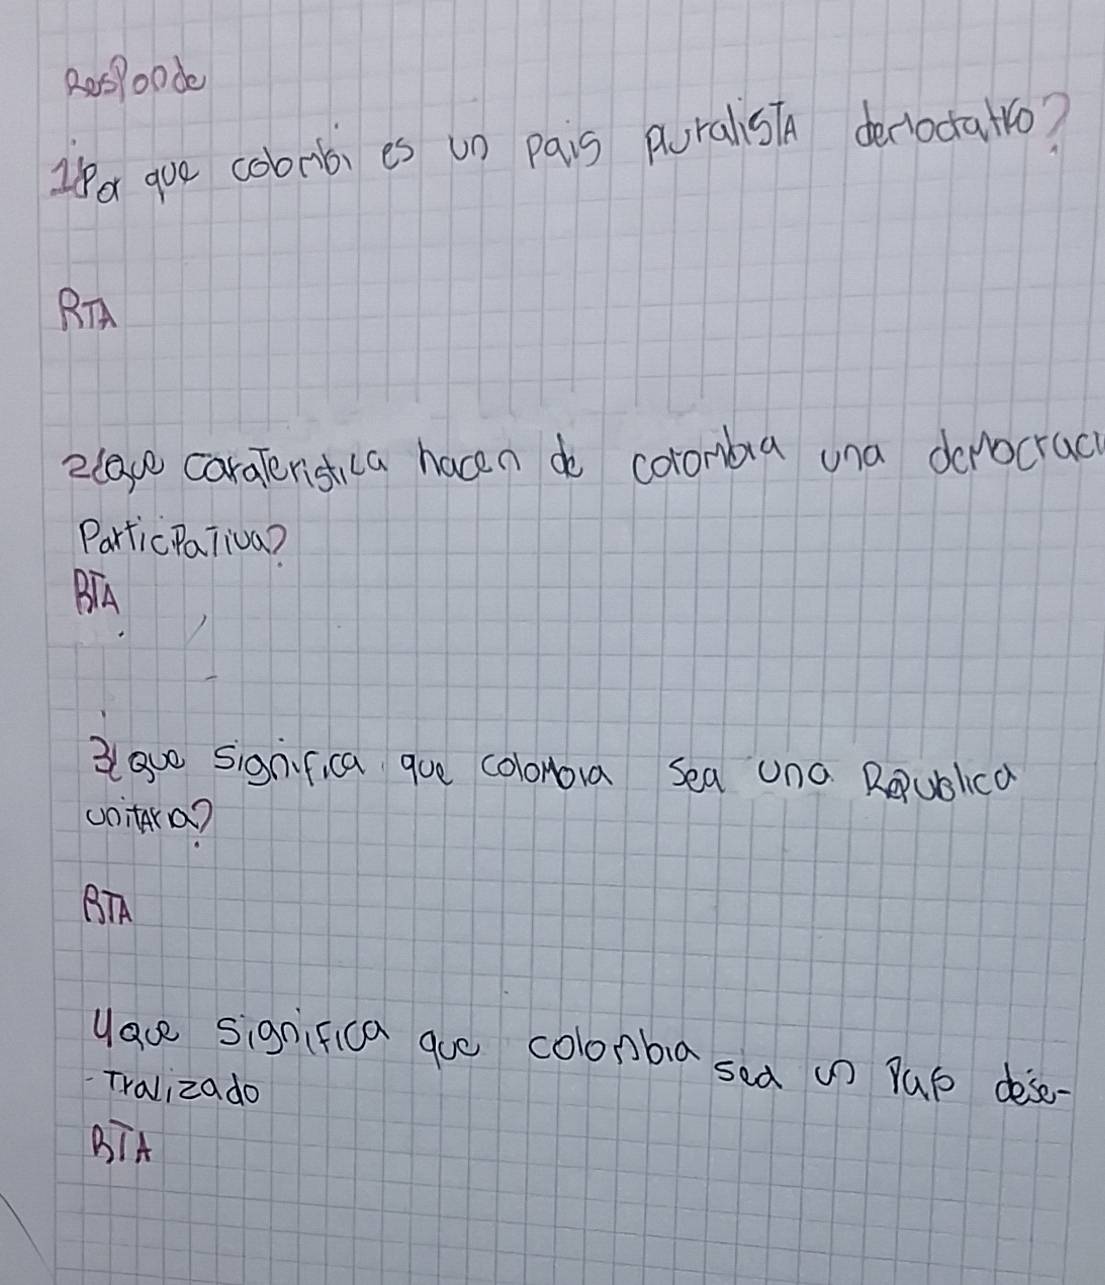 Responde
1¿Por que colombi es un pais pluralisTA democratico?
RTA
2¿Que caraTeristica hacen de colombia una democraci
ParticiPaTiva?
RTA
3¿Que significa que colombia sea una Republica
unitaria?
RTA
4 Que significa que colombia sea un Pais dese-
-Tralizado
RTA